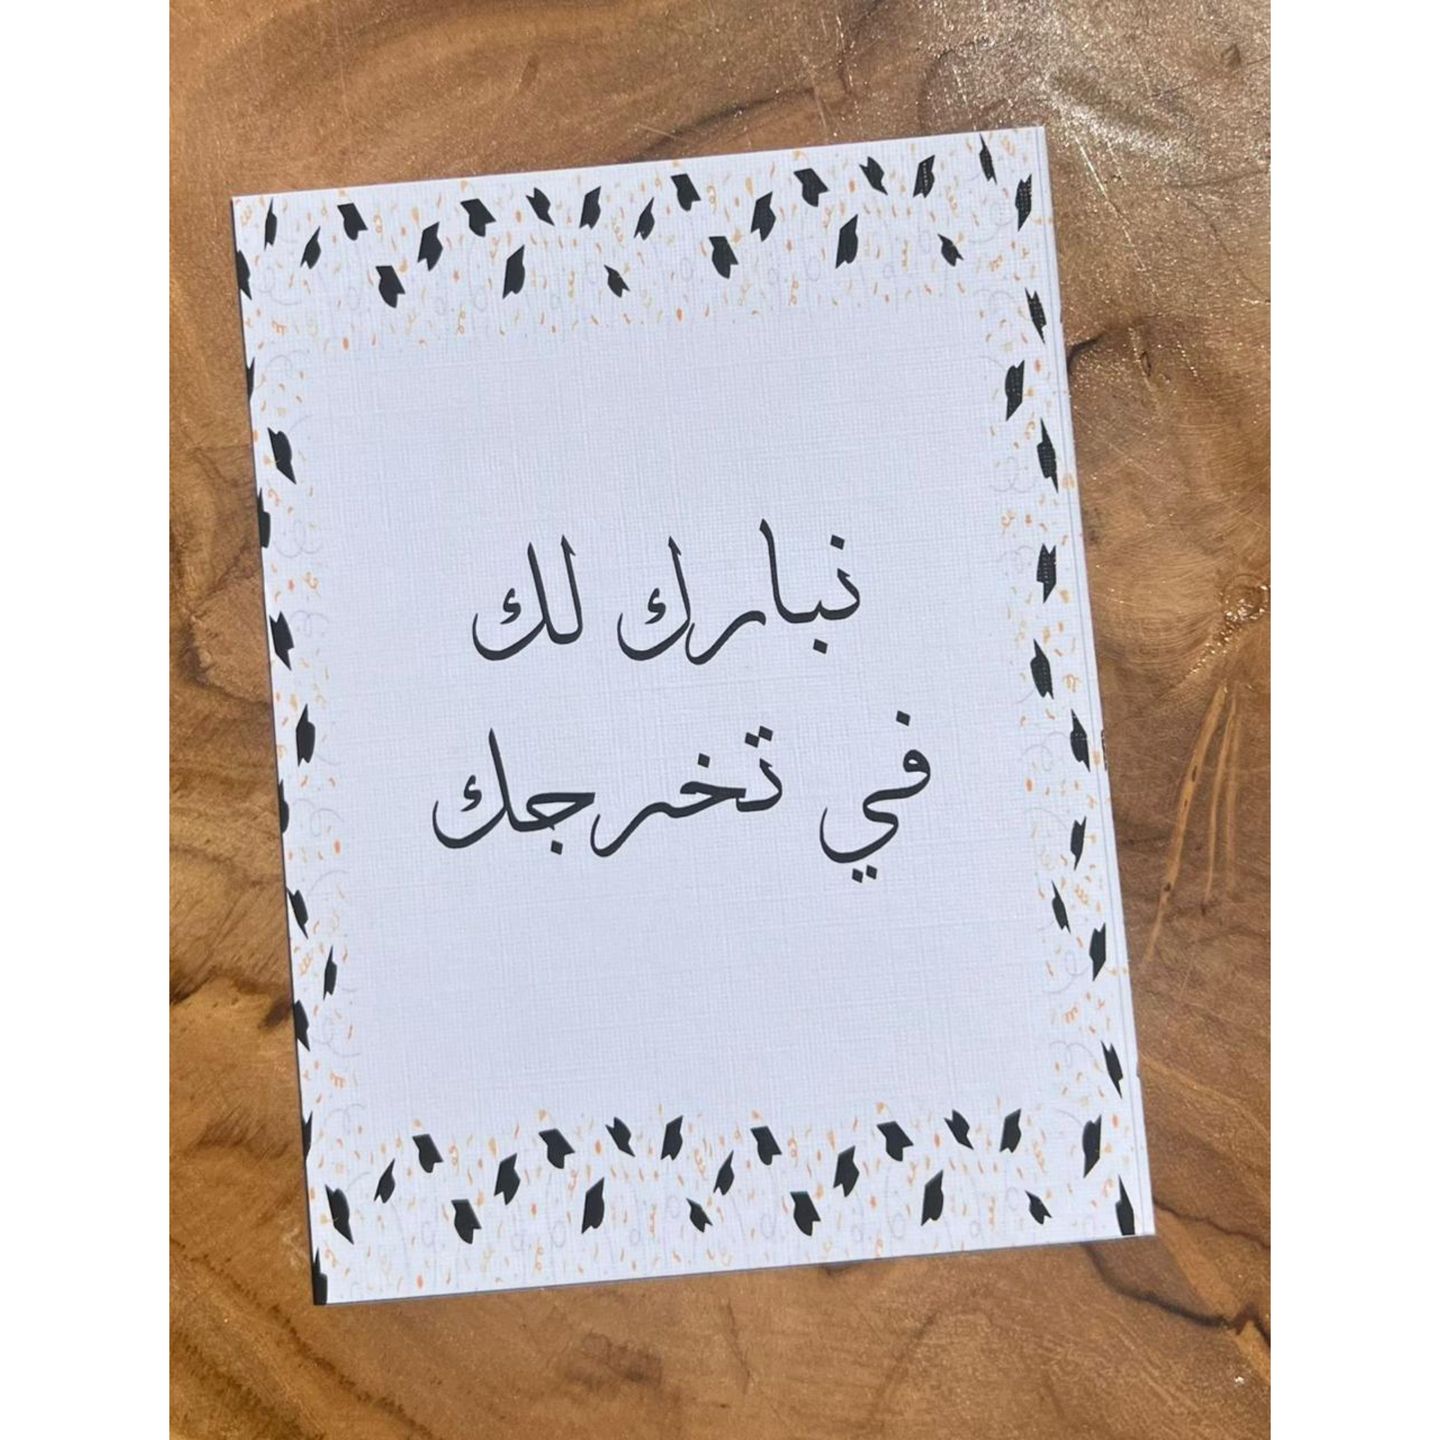 نبارك لك
في تخرجك